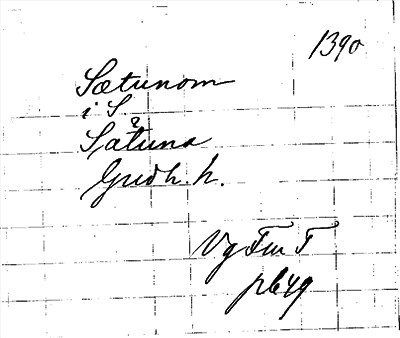 1390
Sætunom
i S
?
Sätuna
Gudh. h.
Vg Fm T
p649